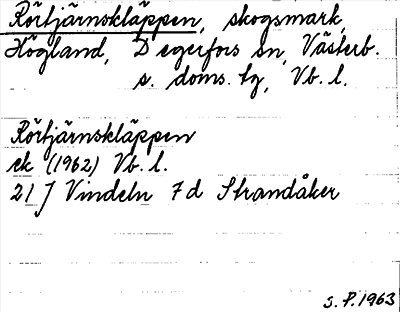 Rörtjärnskläppen, skogsmark,
Högland, Degerfors sn, Västerb.
s. doms. tg, Vb. l.
Rörtjärnskläppen
ek (1962) Vb. l.
21 J Vindeln 7d Strandåker
S. P. 1963